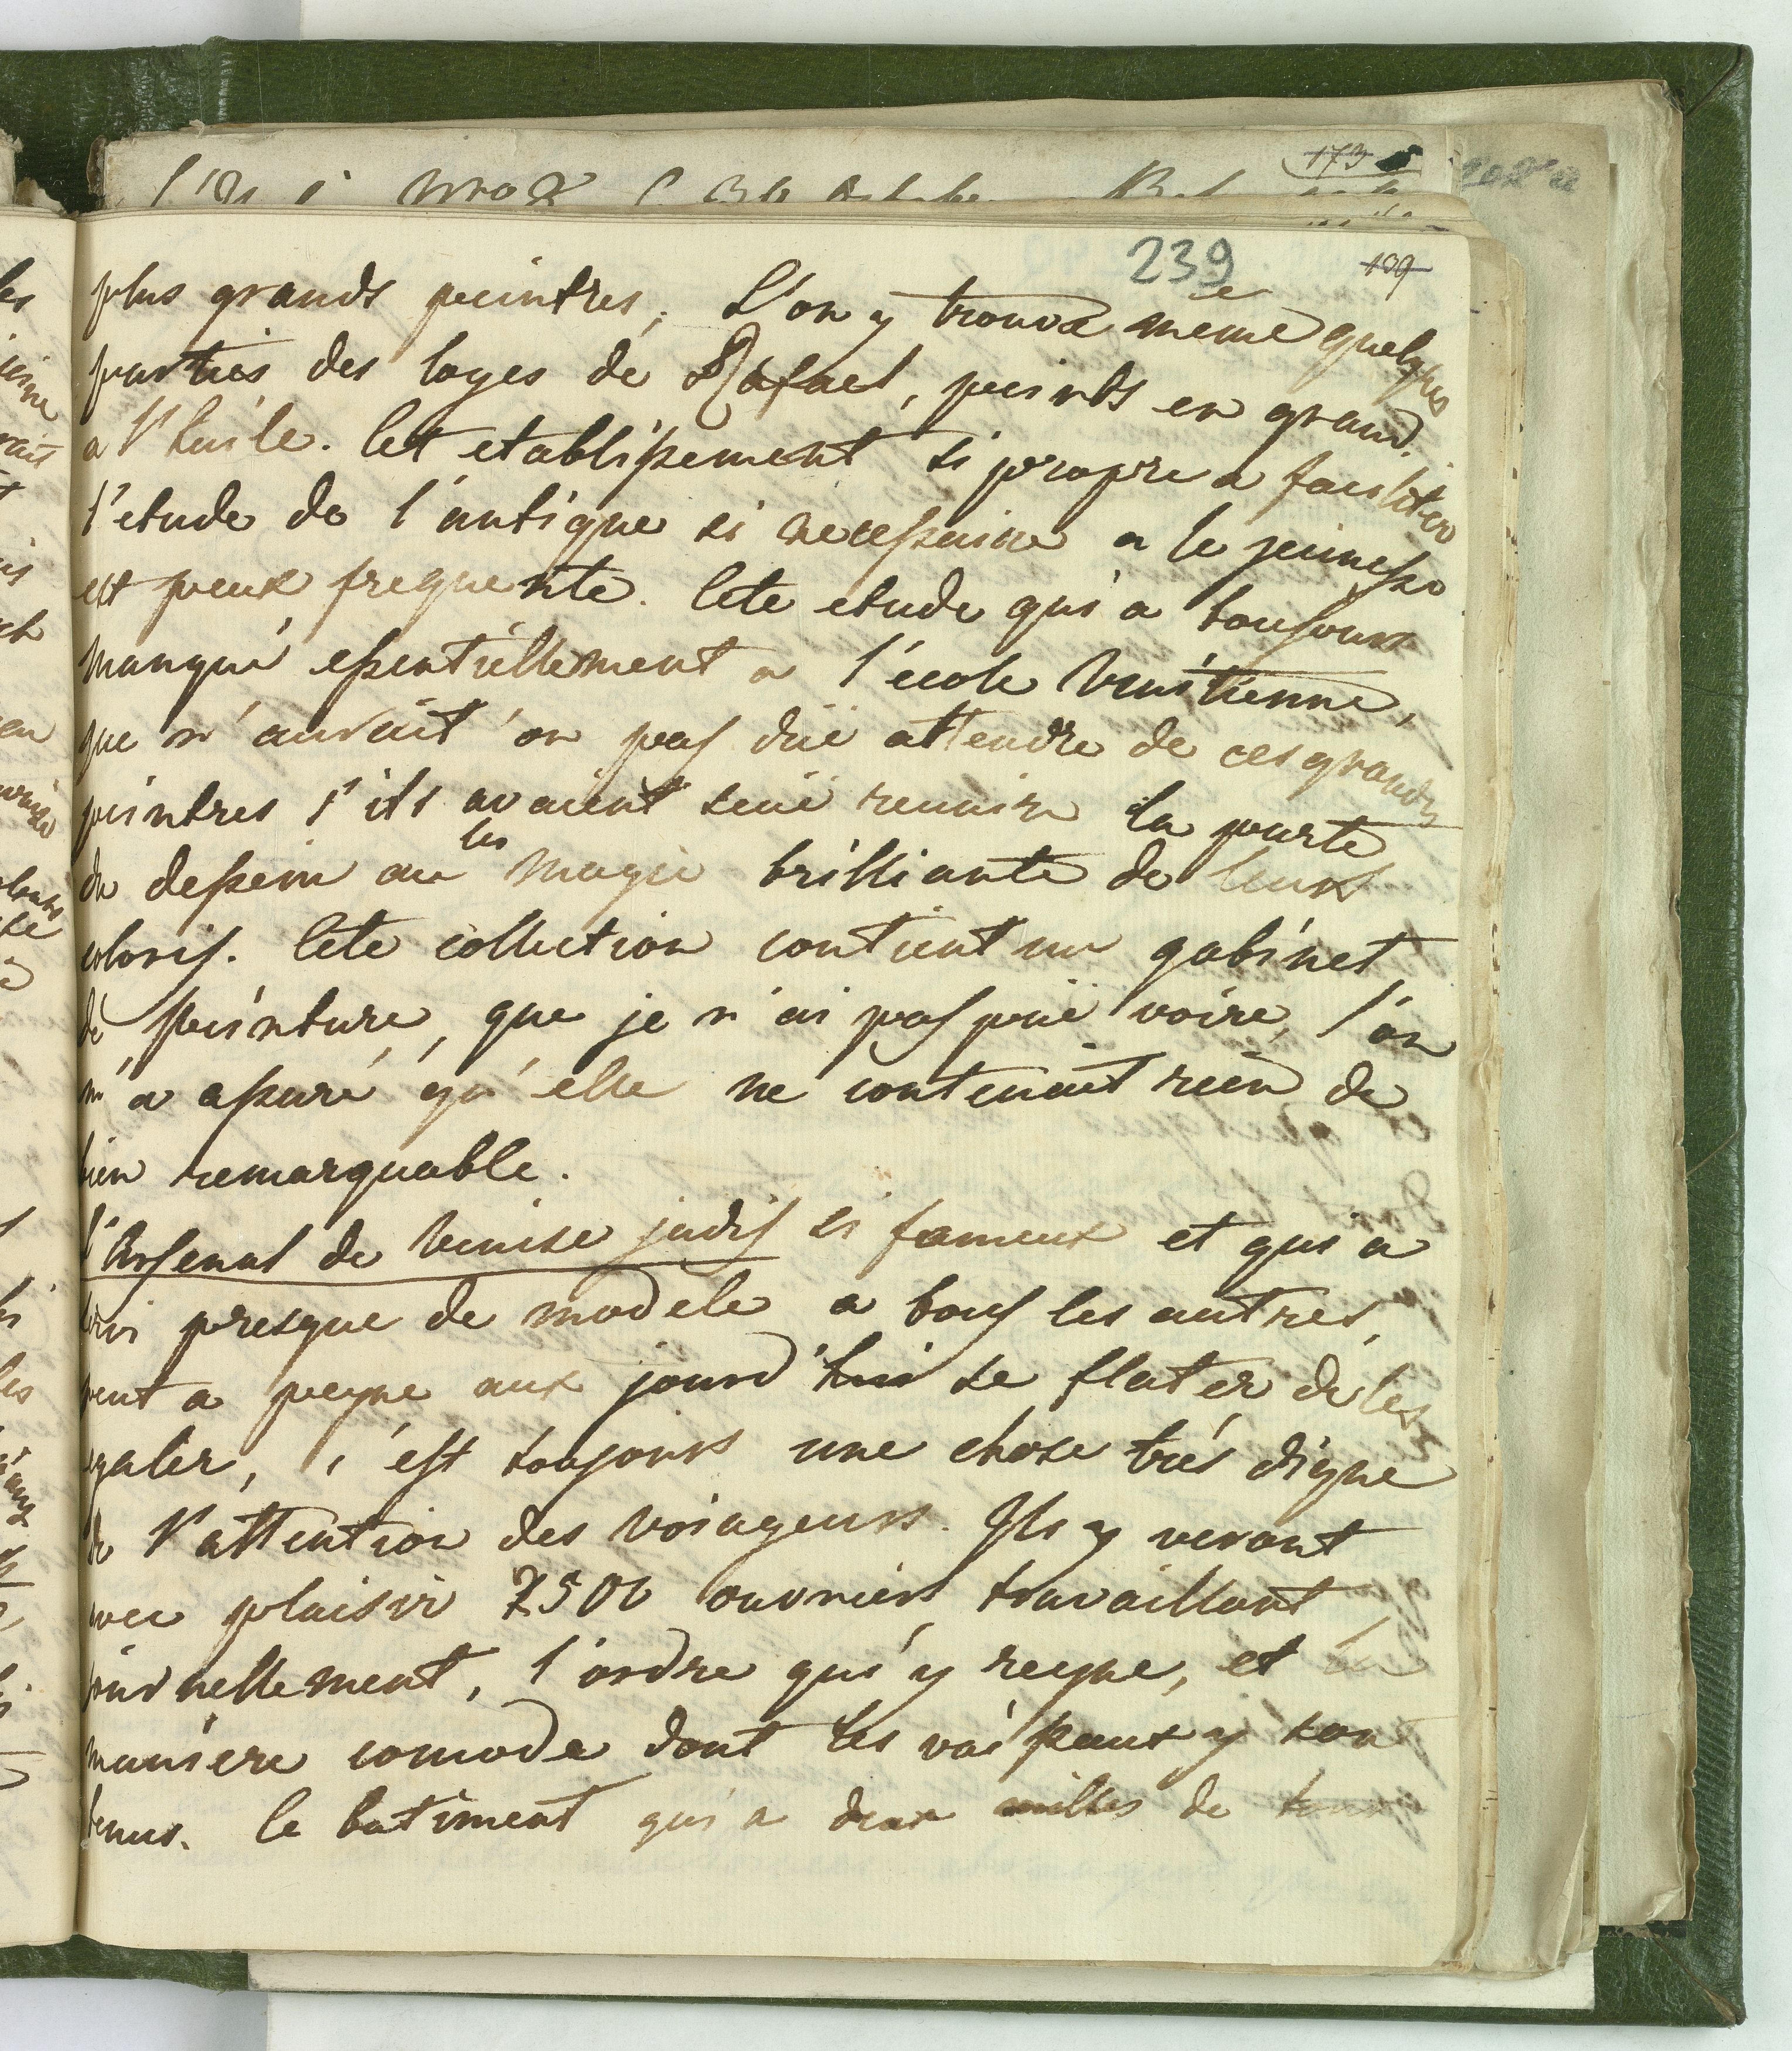 173
239
109
plus grands peintres, L'on y trouve meme quelques
parties des loges de Rafael, peints en grand
a l'huile. Cet etablissement si propre a faciliter
l'etude de l'antique si necessaire a la jeunesse
est peux frequenté. Cete etude qui a toujours
manqué essentiellement a l'école Venitienne,
que n'aurait on pas düe attendre de ces grands
peintres s'ils avaient seüe reunire la purté
du dessein au les magie brilliante de leurs
coloris. Cete collection contient un gabinet
de peinture, que je n'ai pas püe voire, l'on
m'a assuré qu'elle ne contenait rien de
bien remarquable.
l'Arsenal de Venise jadis si fameux et qui a
servi presque de modele a tous les autres,
peut a peyne aux jourd'hui se flater de les
egaler, c'est toujours une chose trés digne
de l'attention des voiageurs. Ils y veront
avec plaisir 2500 ouvriers travaillant
journellement, l'ordre qui y reyne, et la
maniere comode dont les vaisseaux y son
tenus. Ce batiment qui a deux milles de tour